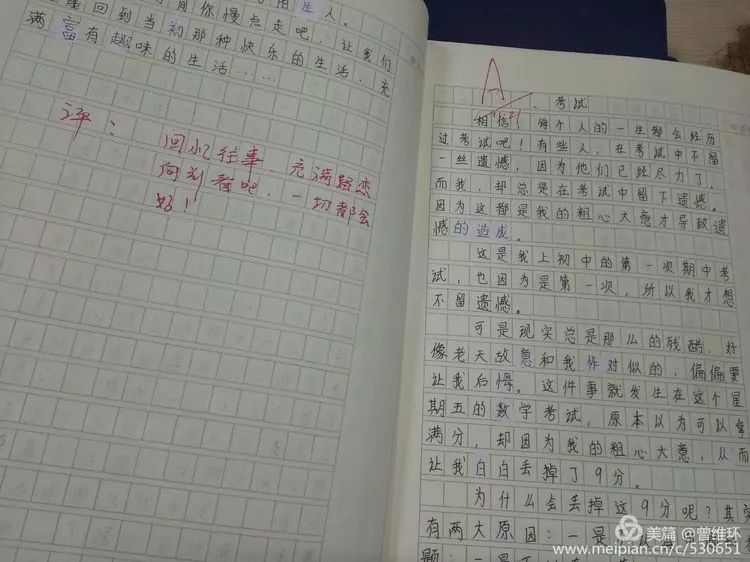 间你慢点走吧，让我们
能回到当初那种快乐的生活，充
满富有趣味的生活……
评：
回忆往事，充满留恋
向前看吧，一切都会
好！
A
、考试
相信，每个人的一生都会经历
过考试吧！有些人，在考试中不留
一丝遗憾，因为他们已经尽力了。
而我，却总是在考试中留下遗憾。
因为这都是我的粗心大意才导致遗
憾的造成。
这是我上初中的第一次期中考
试，也因为是第一次，所以我才想
不留遗憾。
可是现实总是那么的残酷，好
像老天故意和我作对似的，偏偏要
让我后悔。这件事就发生在这个星
期五的数学考试，原本以为可以拿
满分，却因为我的粗心大意，从而
让我白白丢掉了9分。
为什么会丢掉这9分呢？其实
有两大原因：一是
题；一是
美篇 @曾维环
www.meipian.cn/c/530651